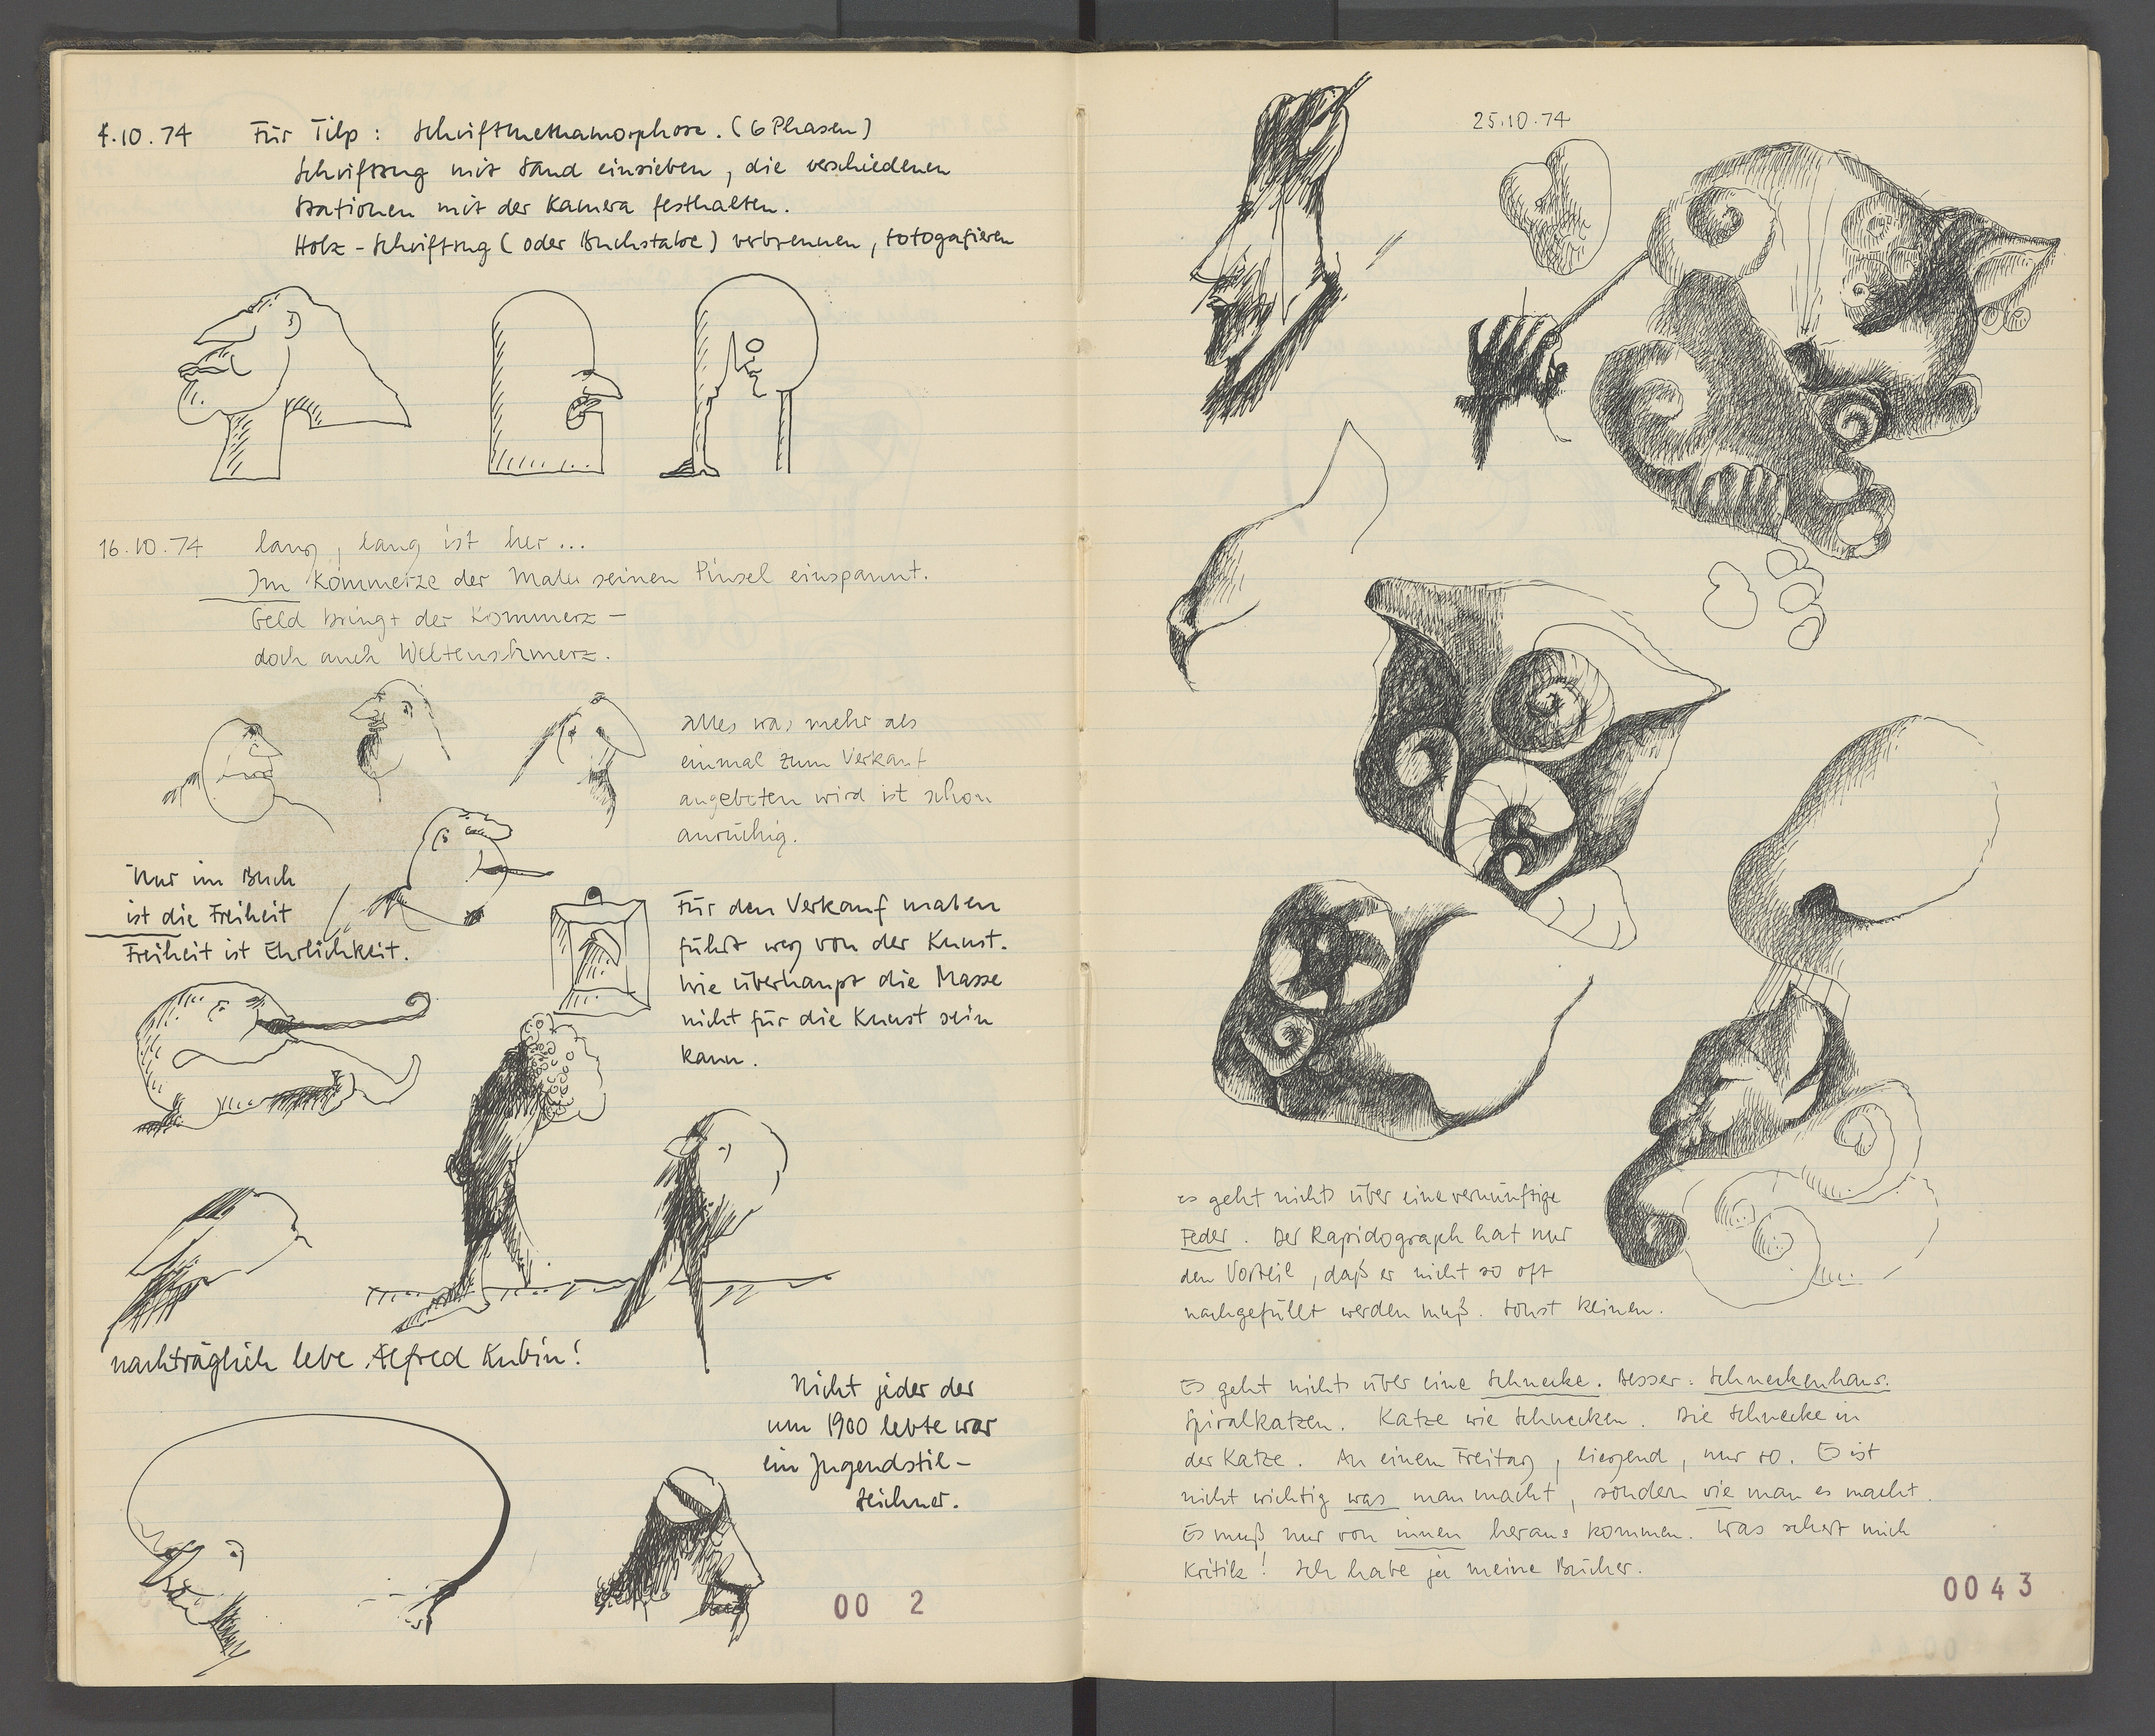 4.10.74 Für Tilp: Schriftmethamorphose. (6 Phasen)
Schriftzug mit Sand einsieben, die verschiedenen
Stationen mit der Kamera festhalten.
Holz-Schriftzug (oder Buchstabe) verbrennen, fotogafieren
16.10.74 lang, lang ist her...
Im Kommerze der Maler seinen Pinsel einspannt.
Geld bringt der Kommerz –
doch auch Weltenschmerz.
Alles was mehr als
einmal zum Verkauf
angeboten wird ist schon
anrüchig.
Nur im Buch
ist die Freiheit
Freiheit ist Ehrlichkeit.
Für den Verkauf malen
führt weg von der Kunst.
Wie überhaupt die Masse
nicht für die Kunst sein
kann.
nachträglich lebe Alfred Kubin!
Nicht jeder der
um 1900 lebte war
ein Jugendstil-
zeichner.
00 2
25.10.74
es geht nichts über eine vernünftige
Feder. Der Rapidograph hat nur
den Vorteil, daß er nicht so oft
nachgefüllt werden muß. sonst keinen.
Es geht nichts über eine Schnecke. Besser: Schneckenhaus.
Spiralkatzen. Katze wie Schnecken. Die Schnecke in
der Katze. An einem Freitag, liegend, nur so. Es ist
nicht wichtig was man macht, sondern wie man es macht.
Es muß nur von innen heraus kommen. Was schert mich
Kritik! Ich habe ja meine Bücher.
0043